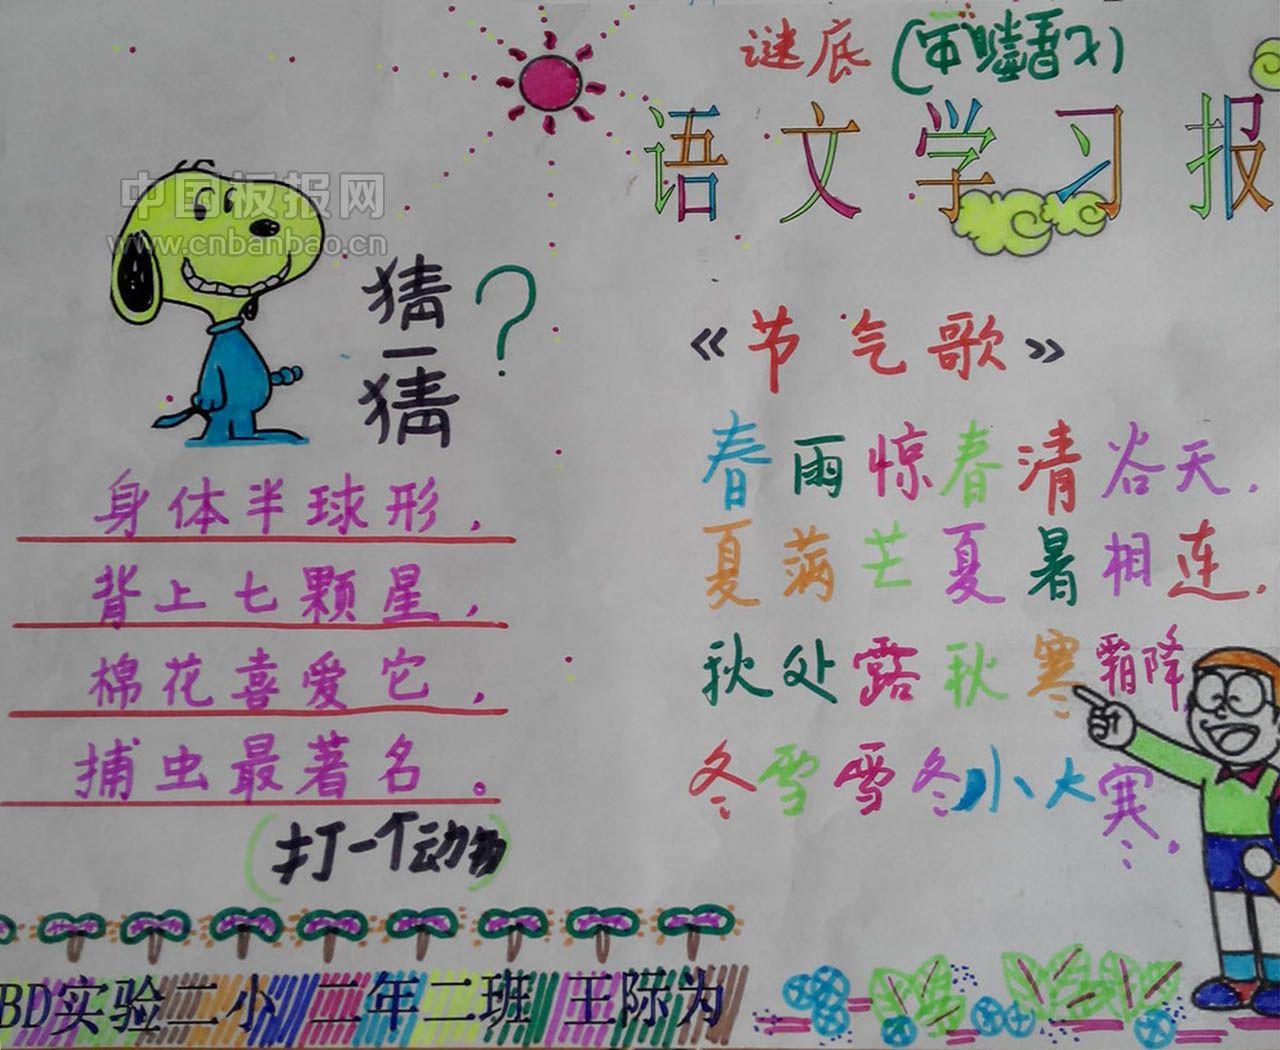 谜底(七星瓢虫)
语文学习报
中国板报网
www.cnbanbao.cn
猜一猜?
身体半球形,
背上七颗星,
棉花喜爱它,
捕虫最著名。
(打一个动物)
《节气歌》
春雨惊春清谷天,
夏满芒夏暑相连.
秋处露秋寒霜降,
冬雪雪冬小大寒.
BD实验二小 二年二班 王际为